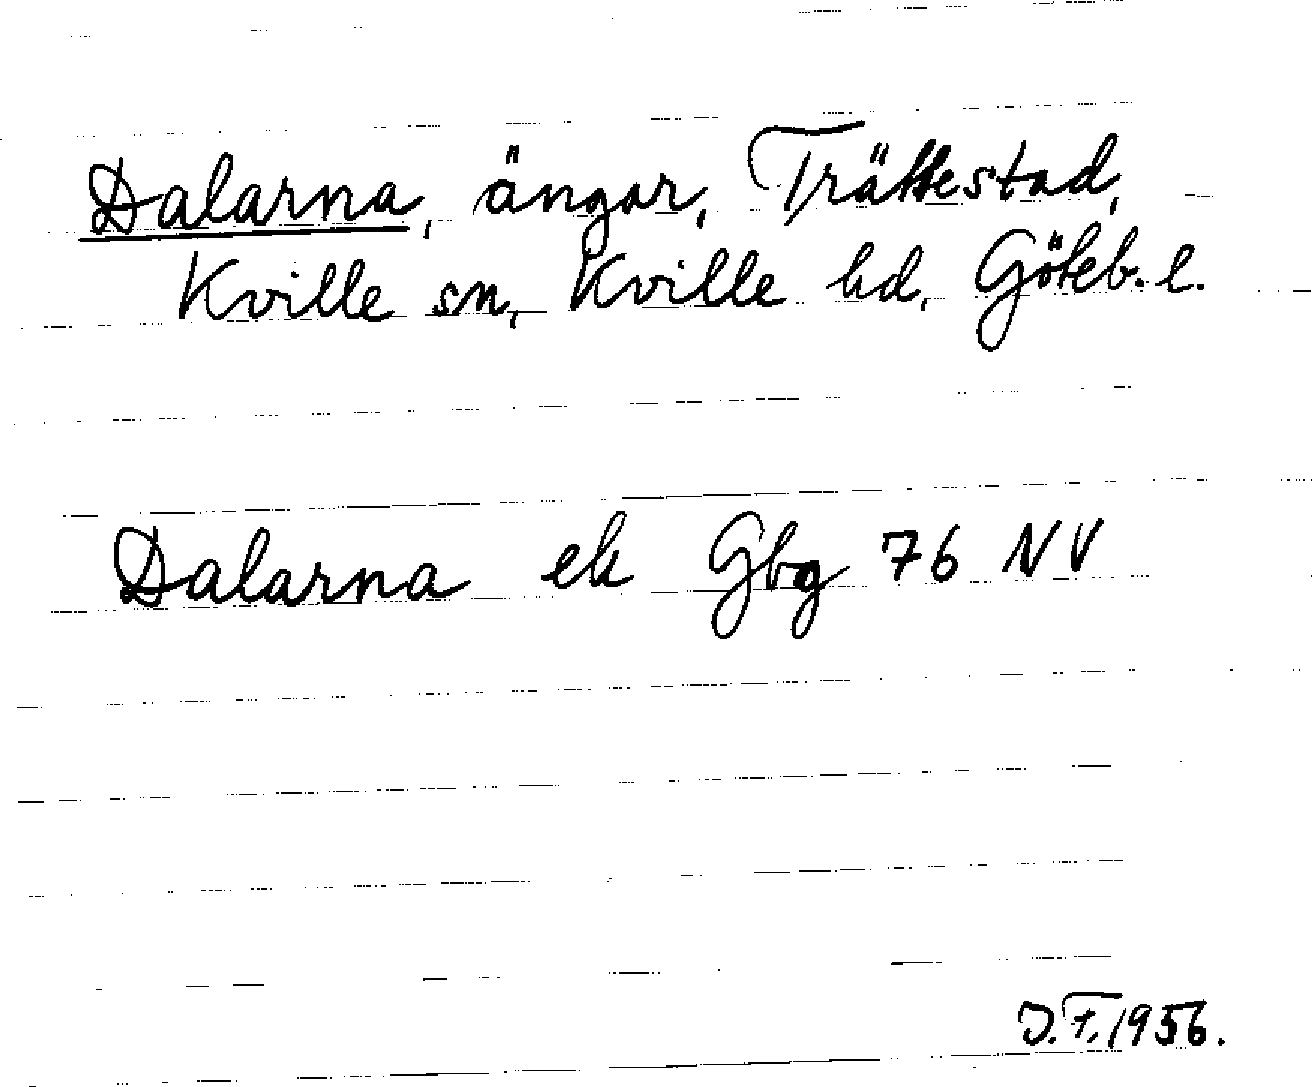 Dalarna, ängar, Trättestad,
Kville sn, Kville hd, Göteb. l.
Dalarna ek Gbg 76 NV
J.F. 1956.